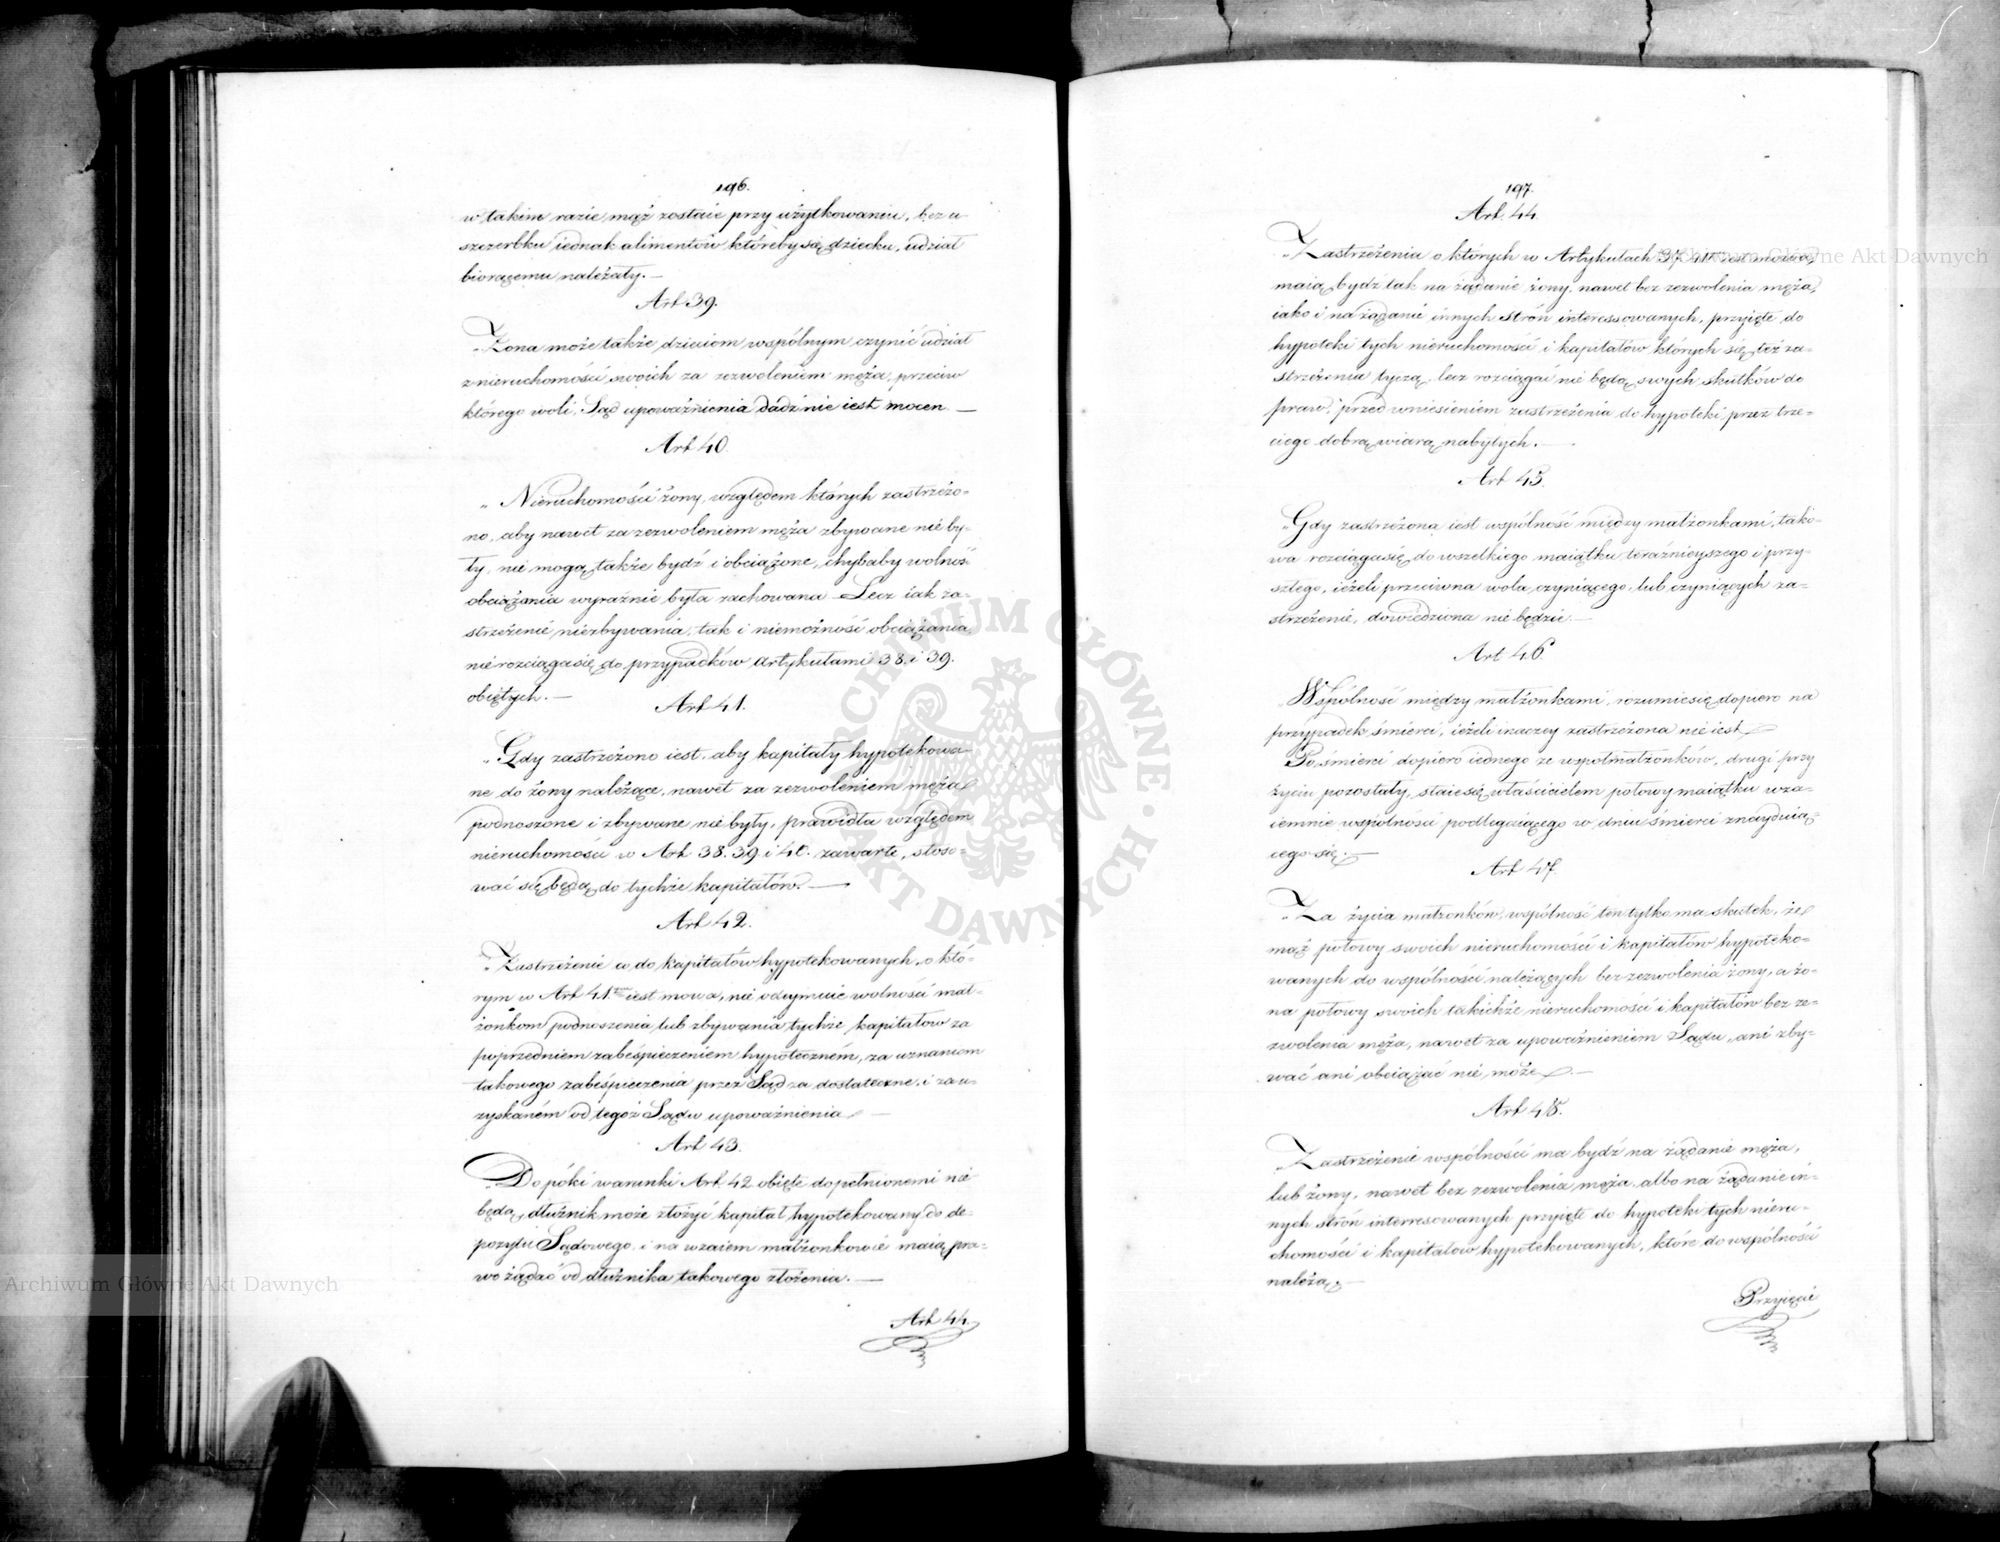 196.
w takim razie mąż zostaie przy użytkowaniu, bez u-
szczerbku iednak alimentów któreby się dziecku, udział
biorącemu należały. —
Art 39.
„Żona może także dzieciom wspólnym czynić udział
z nieruchomości swoich za zezwoleniem męża, przeciw
którego woli, Sąd upoważnienia dadź nie iest mocen —
Art 40.
„Nieruchomości żony, względem których zastrzeżo=
no, aby nawet za zezwoleniem męża zbywane nie by-
ły, nie mogą także bydź i obciążone, chybaby wolność
obciążania wyraźnie była zachowana. Lecz iak za-
strzeżenie niezbywania, tak i niemożność obciążania,
nie rozciąga się do przypadków artykułami 38. i 39.
obiętych. —
Art 41.
„Gdy zastrzeżono iest, aby kapitały hypotekowa
ne do żony należące, nawet za zezwoleniem męża
podnoszone i zbywane nie były, prawidła względem
nieruchomości w Art 38. 39. i 40. zawarte, stoso=
wać się będą do tychże kapitałów. —
Art 42.
„Zastrzeżenie co do kapitałów hypotekowanych, o któ-
rym w Art 41m iest mowa, nie odeymuie wolności mał-
żonkom podnoszenia lub zbywania tychże kapitałów za
poprzedniem zabespieczeniem hypoteczném, za uznaniem
takowego zabespieczenia przez Sąd za dostateczne, i za u-
zyskaném od tegoż Sądu upoważnienia —
Art 43.
„Dopóki warunki Art 42 obięte dopełnionemi nie
będą, dłużnik może złożyć kapitał hypotekowany do de-
pozytu Sądowego, i na wzaiem małżonkowie maią pra-
wo żądać od dłużnika takowego złożenia. —
Art 44.
197.
Art. 44.
„Zastrzeżenia o których w Artykułach 37. 41. iest mowa,
maią bydź tak na żądanie żony, nawet bez zezwolenia męża,
iako i na żądanie innych strón interessowanych, przyięte do
hypoteki tych nieruchomości i kapitałów których się też za-
strzeżenia tyczą, lecz rozciągać nie będą swych skutków do
praw, przed wniesieniem zastrzeżenia do hypoteki przez trze-
ciego dobrą wiarą nabytych. —
Art 45.
„Gdy zastrzeżona iest wspólność między małżonkami, tako-
wa rozciąga się do wszelkiego maiątku teraźnieyszego i przy-
szłego, ieżeli przeciwna wola czyniącego, lub czyniących za-
strzeżenie, dowiedziona nie będzie —
Art 46.
„Wspólność między małżonkami, rozumie się dopiero na
przypadek śmierci, ieżeli inaczey zastrzeżona nie iest
Po śmierci dopiero iednego ze wspołmałżonków, drugi przy
życiu pozostały, staie się właścicielem połowy maiątku wza-
iemnie wspólności podlegaiącego w dniu śmierci znayduią-
cego się. —
Art 47.
„Za życia małżonków, wspólność ten tylko ma skutek, że
mąż połowy swoich nieruchomości i kapitałów hypoteko-
wanych do wspólności należących bez zezwolenia żony, a żo-
na połowy swoich takichże nieruchomości i kapitałów bez ze-
zwolenia męża, nawet za upoważnieniem Sądu, ani zby-
wać ani obciążać nie może. —
Art 48.
„Zastrzeżenie wspólności ma bydź na żądanie męża,
lub żony, nawet bez zezwolenia męża albo na żądanie in-
nych strón interresowanych przyięte do hypoteki tych nieru-
chomości i kapitałów hypotekowanych, które do wspólności
należą. —
Przyięcie
Archiwum Główne Akt Dawnych
Archiwum Główne Akt Dawnych
ARCHIWUM GŁÓWNE · AKT DAWNYCH ·